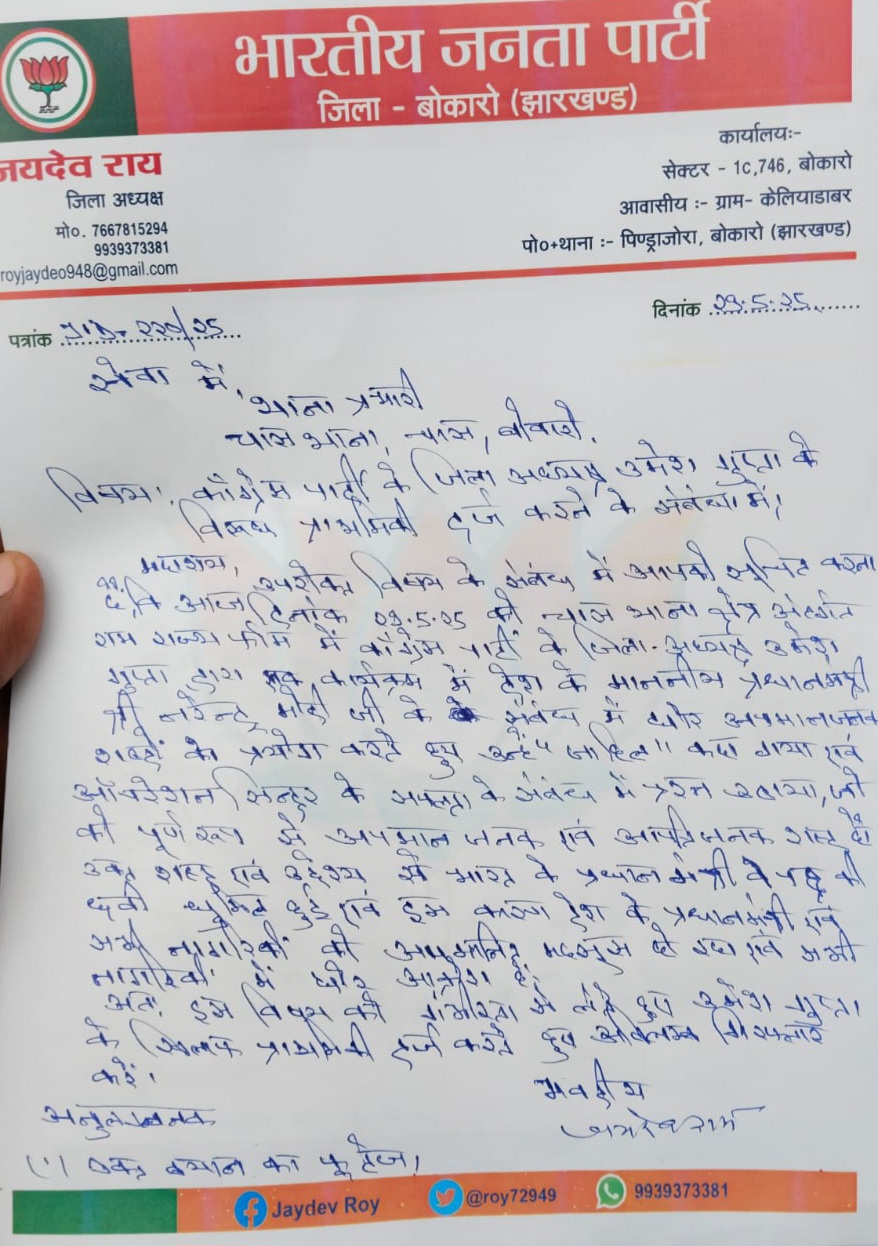 भारतीय जनता पार्टी
जिला - बोकारो (झारखण्ड)
जयदेव राय
जिला अध्यक्ष
मो०. 7667815294
9939373381
royjaydeo948@gmail.com
कार्यालयः-
सेक्टर - 1c,746, बोकारो
आवासीय :- ग्राम- केलियाडाबर
पो०+थाना :- पिण्ड्राजोरा, बोकारो (झारखण्ड)
पत्रांक 220/25
दिनांक 29.5.25
सेवा में,
थाना प्रभारी
चास थाना, चास, बोकारो.
विषय:. काँग्रेस पार्टी के जिला अध्यक्ष उमेश गुप्ता के
विरूध प्राथमिकी दर्ज करने के संबंध में।
महाशय,
उपरोक्त विषय के संबंध में आपको सूचित करना
है, कि आज दिनांक 29.5.25 को चास थाना क्षेत्र अंतर्गत
राम राज्य में काँग्रेस पार्टी के जिला-अध्यक्ष उमेश
गुप्ता द्वारा एक कार्यक्रम में देश के माननीय प्रधानमंत्री
श्री नरेन्द्र मोदी जी के संबंध में घोर अपमानजनक
शब्दों का प्रयोग करते हुए उन्हें कहा गया एवं
ऑपरेशन सिन्दुर के सफलता के संबंध में प्रश्न उठाया, जो
की पूर्ण रूप से अपमान जनक एवं आपत्तिजनक शब्द है
उक्त शब्द एवं उद्देश्य से भारत के प्रधान मंत्री के पद की
छवी धूमिल हुई एवं इस कारण देश के प्रधानमंत्री एवं
सभी नागरिकों को अपमानित महसुस हो रहा एवं सभी
नागरिकों में घोर आक्रोश है.
अतः इस विषय को गंभीरता से लेते हुए उमेश गुप्ता
के खिलाफ प्राथमिकी दर्ज करते हुए अविलम्ब गिरफ्तार
करें.
भवदीय
(1) उक्त बयान का फूटेज,
Jaydev Roy
@roy72949
9939373381